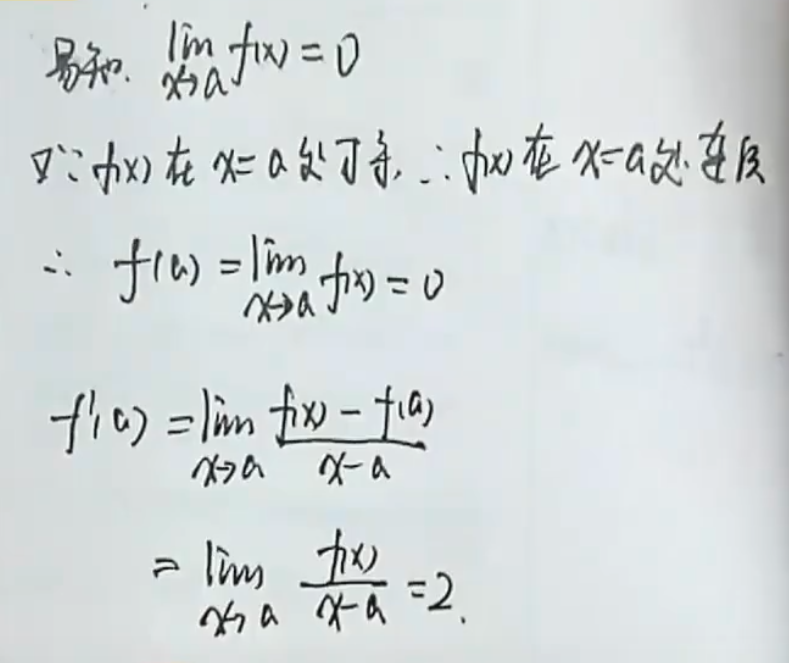 易知. lim x→a f(x) = 0
又∵ f(x) 在 x=a 处可导, ∴ f(x) 在 x=a 处连续
∴ f(a) = lim x→a f(x) = 0
f'(a) = lim x→a (f(x) - f(a))/(x-a)
= lim x→a f(x)/(x-a) = 2.